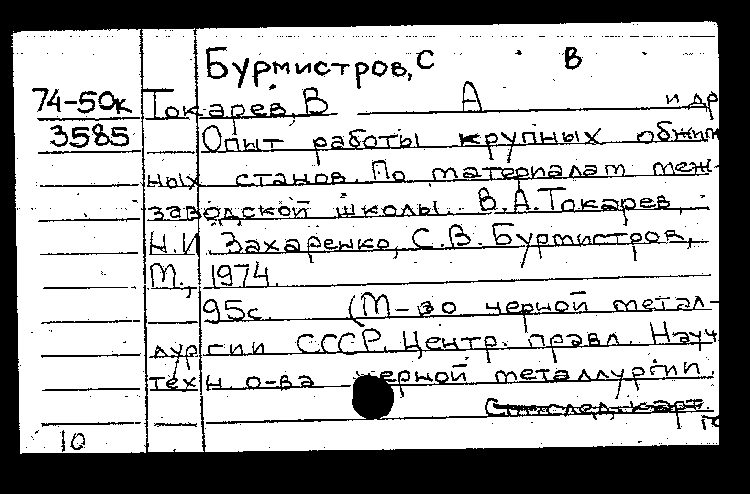 Бурмистров, С В
74-50к Токарев, В А и др
3585 Опыт работы крупных обжим
ных станов. По материалам меж-
заводской школы. В.А.Токарев,
Н.И. Захаренко, С.В. Бурмистров,
М., 1974.
95с. (М-во черной метал-
лургии СССР. Центр. правл. Науч
техн. о-ва черной металлургии.
См.след.карт.
10